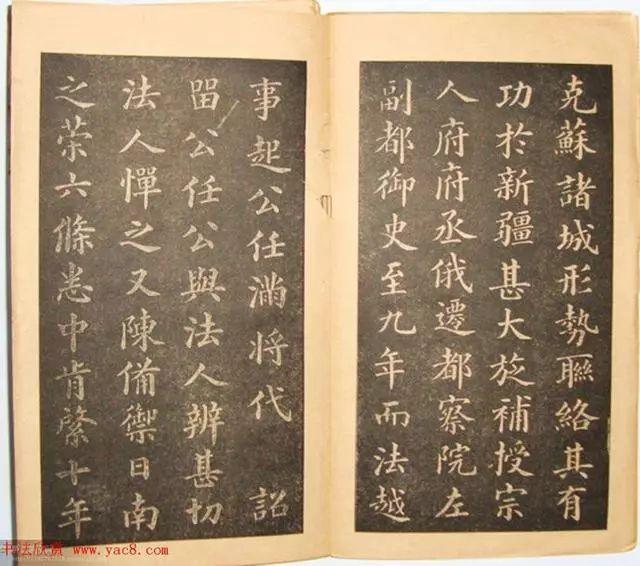 克蘇諸城形勢聯絡其有
功於新疆甚大旋補授宗
人府府丞俄遷都察院左
副都御史至九年而法越
事起公任滿將代 詔
留公任公與法人辨甚切
法人憚之又陳備禦日南
之策六條悉中肯綮十年
书法欣赏 www.yac8.com